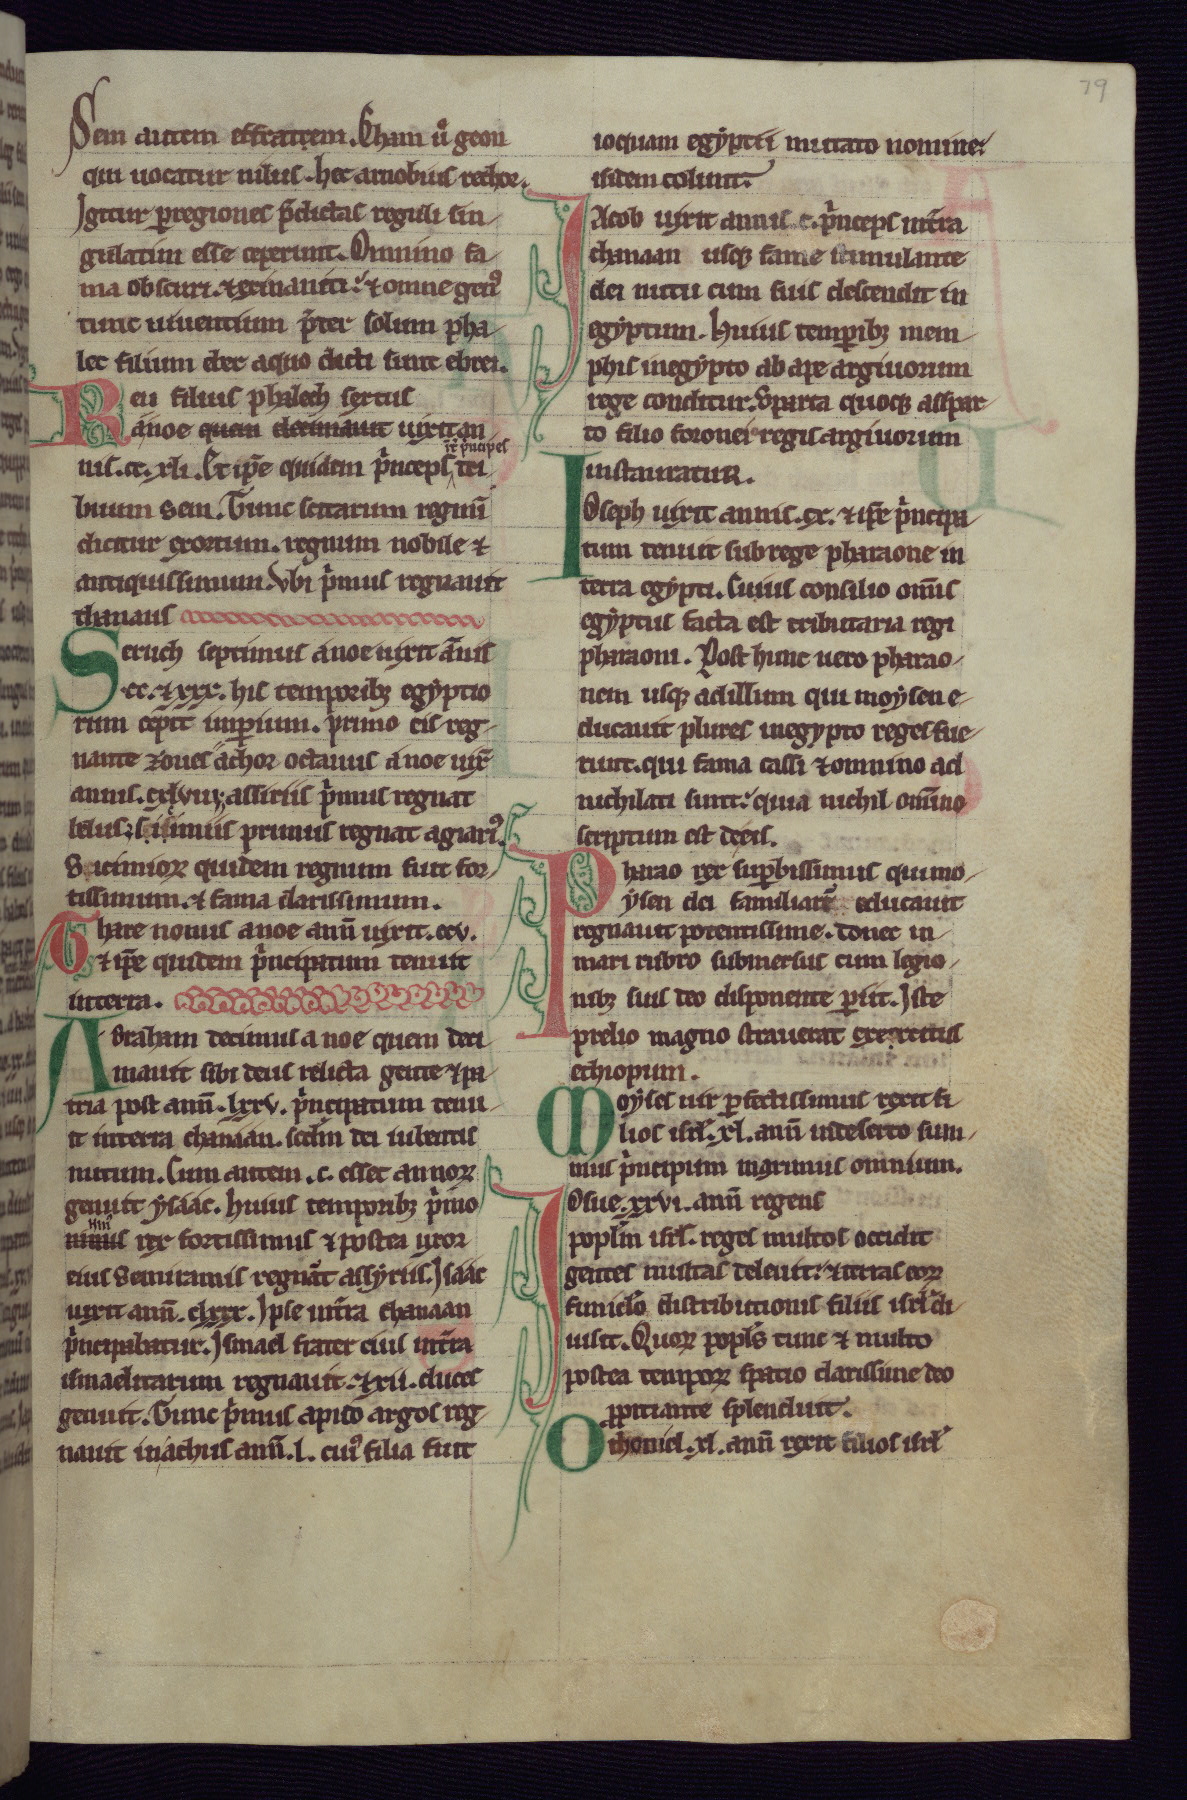 79
Sem autem effratem. Cham ů geon
qui uocatur nilus. hec arnobius rethor.
Igitur p regiones p̃dictas reguli sin
gulatim esse ceperunt. Omnino fa
ma obscuri. & exinaniti: & omne gen⁹
tunc uiuentium p̃ter solum pha
lec filium eber a quo dicti sunt ebrei.
Reu filius phalech sextus
a noe quem decimauit uixit an
nis .cc. xli. Et ip̃e quidem p̃nceps int̃ p̃ncipes tri
buum sem. Tunc scitarum regnũ
dicitur exortum. regnum nobile &
antiquissimum. Vbi p̃mus regnauit
thanaus
Seruch septimus a noe uixit ãnis
.cc. & xxx. his temporibȝ egyptio
rum cepit impium. primo eis reg
nante zoues achor octauus a noe uix̃
annis. cxlviiij. assiriis p̃mus regnat
belus: sicimiis primus regnat agiari⁹.
Sicimioꝝ quidem regnum fuit for
tissimum. & fama clarissimum.
Thare nonus a noe anñ uixit. ccv.
& ip̃e quidem p̃ncipatum tenuit
in terra.
Abraham decimus a noe quem deci
mauit sibi deus relicta gente & pa
tria post anñ. lxxv. p̃ncipatum tenu
it in terra chanaan. scdm̃ dei iubentis
nutum. Cum autem .c. esset annoꝝ
genuit ysaac. Huius temporibȝ p̃mo
nin⁹ ninus rex fortissimus & postea uxor
eius Semiramis regnãt assyriis. Isaac
uixit anñ. clxxx. Ipse in t̃ra chanaan
p̃ncipabatur. Ismael frater eius in t̃ra
ismaelitarum regnauit. & xii. duces
genuit. Tunc p̃mus apud argos reg
nauit inachus anñ. l. cui⁹ filia fuit
io quam egyptii mutato nomine:
isidem colunt.
Iacob uixit annis .c. p̃nceps in t̃ra
chanaan usqȝ fame stimulante
dei nutu cum suis descendit in
egyptum. Huius temporibȝ mem
phis in egypto ab ape argiuorum
rege conditur. Sparta quoqȝ a spar
to filio foronei regis argiuorum
instauratur.
Ioseph uixit annis .cx. & ip̃e p̃ncipa
tum tenuit sub rege pharaone in
terra egypti. Cuius consilio om̃is
egyptus facta est tributaria regi
pharaoni. Post hunc uero pharao
nem usqȝ ad illum qui moysen e
ducauit plures in egypto reges fue
runt. qui fama cassi & omnino ad
nichilati sunt: quia nichil om̃ino
scriptum est de eis.
Pharao rex supbissimus qui mo
ysen dei familiarẽ educauit
regnauit potentissime. donec in
mari rubro submersus cum legio
nibȝ suis deo disponente piit. Iste
prelio magno strauerat exercitus
ethiopum.
Moyses uir pfectissimus rexit fi
lios isrl̃. xl. anñ in deserto sum
mus p̃ncipum maximus omnium.
Iosue. xxvi. anñ regens
popl̃m isrl̃. reges multos occidit
gentes multas deleuit: & terras eoꝝ
funicl̃o distributionis filiis isrl̃ di
uisit. Quoꝝ popl̃s tunc & multo
postea tempoꝝ spatio clarissime deo
ppitiante splenduit.
Othoniel. xl. anñ rexit filios isrl̃